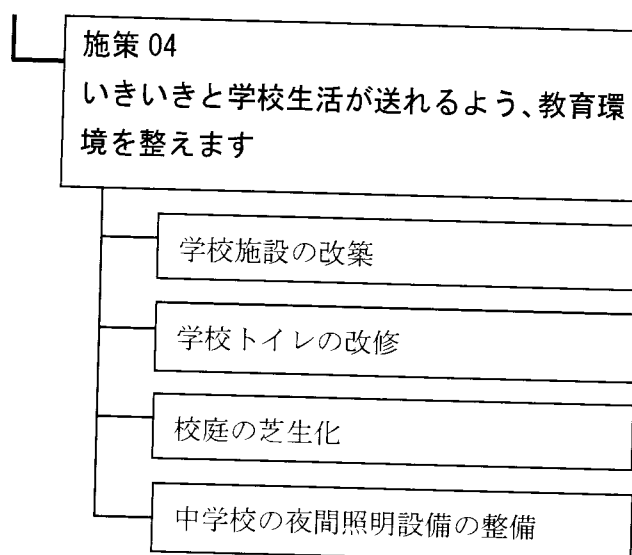 施策 04
いきいきと学校生活が送れるよう、教育環
境を整えます
学校施設の改築
学校トイレの改修
校庭の芝生化
中学校の夜間照明設備の整備